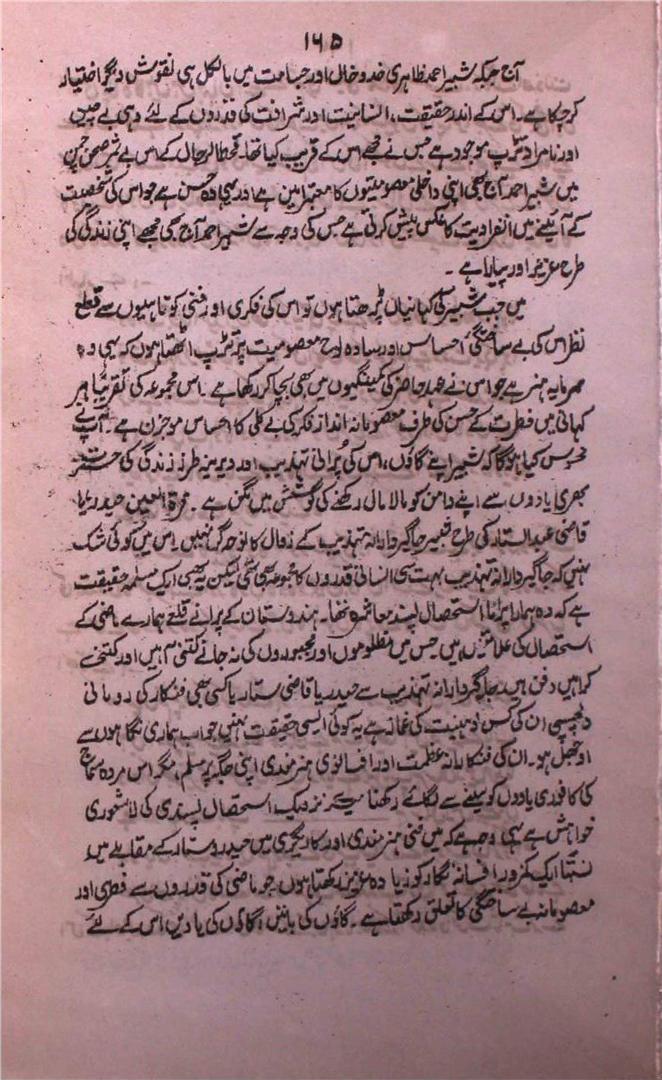 ۱۶۵
آج جبکہ شبیر احمد ظاہری خدوخال اور جسامت میں بالکل ہی نقوش دیگر اختیار
کرچکا ہے۔ اس کے اندر حقیقت، انسانیت اور شرافت کی قدروں کے لئے وہی بے چین
اور نامراد تڑپ موجود ہے جس نے مجھے اس کے قریب کیا تھا۔ قحط الرجال کے اس بے ثمر صحن چمن
میں شبیر احمد آج بھی اپنی داخلی معصومیتوں کا معتبر امین ہے اور یہی وہ حسن ہے جو اس کی شخصیت
کے آئینے میں انفرادیت کا عکس پیش کرتی ہے جس کی وجہ سے شبیر احمد آج بھی مجھے اپنی زندگی کی
طرح عزیز اور پیارا ہے ۔
میں جب شبیر کی کہانیاں پڑھتا ہوں تو اس کی فکری اور فنی کوتاہیوں سے قطع
نظر اس کی بے ساختگیٔ احساس اور سادہ لوح معصومیت پر تڑپ اٹھتا ہوں کہ یہی وہ
سرمایہ ہنر ہے جو اس نے عہد حاضر کی کمینگیوں میں بھی بچا کر رکھا ہے ۔ اس مجموعہ کی تقریباً ہر
کہانی میں فطرت کے حسن کی طرف معصومانہ انداز فکر کی بے کلی کا احساس موجزن ہے۔ آپ نے
محسوس کیا ہوگا کہ شبیر اپنے گاؤں، اس کی پُرانی تہذیب اور دیرینہ طرز زندگی کی حسرت
بھری یادوں سے اپنے دامن کو مالا مال رکھنے کی کوشش میں مگن ہے ۔ قرۃ العین حیدر یا
قاضی عبدالستار کی طرح شبیر جاگیردارانہ تہذیب کے زوال کا نوحہ گر نہیں۔ اس میں کوئی شک
نہیں کہ جاگیردارانہ تہذیب بہت سی انسانی قدروں کا مجموعہ بھی تھی لیکن یہ بھی ایک مسلمہ حقیقت
ہے کہ وہ ہمارا پرانا استحصال پسند معاشرہ تھا۔ ہندوستان کے پرانے قلعے ہمارے ماضی کے
استحصال کی علامتیں ہیں جس میں مظلوموں اور مجبوروں کی نہ جانے کتنی آہیں اور کتنی
کراہیں دفن ہیں۔ جاگیردارانہ تہذیب سے حیدر یا قاضی ستار یا کسی بھی فنکار کی رومانی
دلچسپی ان کی کس ذہنیت کی غماز ہے یہ کوئی ایسی حقیقت نہیں جو اب ہماری نگاہوں سے
اوجھل ہو۔ ان کی فنکارانہ عظمت اور افسانوی ہنرمندی اپنی جگہ پر مسلم، مگر اس مردہ سماج
کی کافوری یادوں کو سینے سے لگائے رکھنا میرے نزدیک استحصال پسندی کی لاشعوری
خواہش ہے یہی وجہ ہے کہ میں فنی ہنرمندی اور کاریگری میں حیدر و ستار کے مقابلے میں
نسبتاً ایک کمزور افسانہ نگار کو زیادہ عزیز رکھتا ہوں جو ماضی کی قدروں سے فطری اور
معصومانہ بے ساختگی کا تعلق رکھتا ہے ۔ گاؤں کی باتیں، گاؤں کی یادیں اس کے لئے